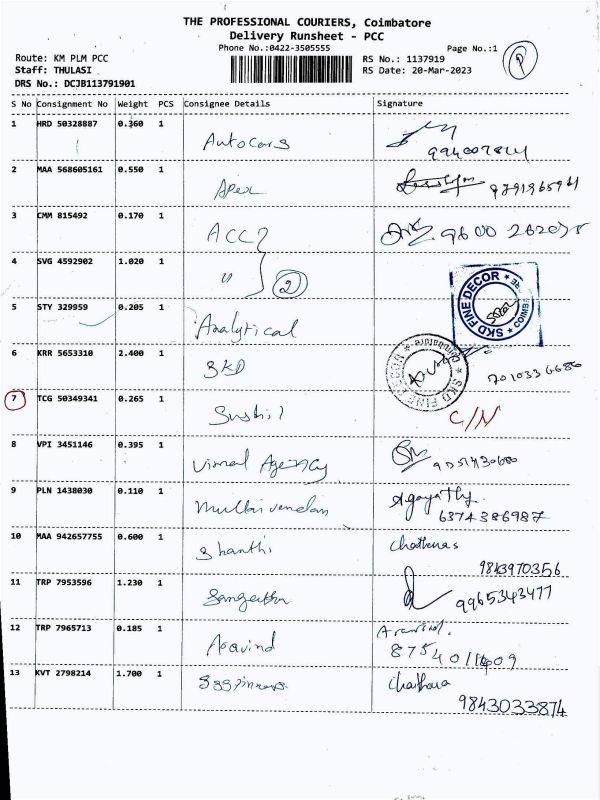 THE PROFESSIONAL COURIERS, Coimbatore
Delivery Runsheet - PCC
Phone No.:0422-3505555
Page No.:1
P
Route: KM PLM PCC
RS No.: 1137919
Staff: THULASI
RS Date: 20-Mar-2023
DRS No.: DCJB113791901
S No Consignment No Weight PCS Consignee Details Signature
1 HRD 50328887 0.360 1 Autocars
2 MAA 568605161 0.550 1 Apex
3 CMM 815492 0.170 1 ACC 9600
4 SVG 4592902 1.020 1 " 2
SKD FINE DECOR
5 STY 329959 0.205 1 Analytical
6 KRR 5653310 2.400 1 SKD
SKD FINE DECOR
7 TCG 50349341 0.265 1 Sushil C/N
8 VPI 3451146 0.395 1 Vimal Agency
9 PLN 1438030 0.110 1 Mullai vendan
6374386987
10 MAA 942657755 0.600 1 Shanthi
9843970356
11 TRP 7953596 1.230 1 Sangeetha
9965343477
12 TRP 7965713 0.185 1 Aravind Aravind.
13 KVT 2798214 1.700 1
9843033874